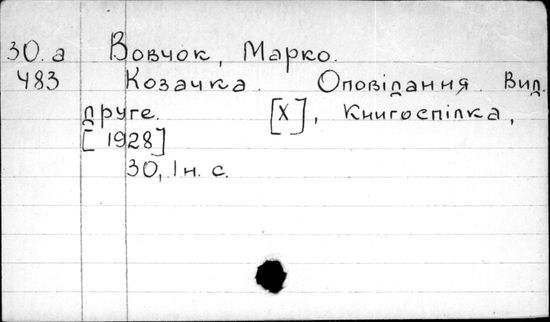 30.а Вовчок, Марко.
483 Козачка. Оповідання. Вид.
друге. [Х], Книгоспілка,
[1928]
30, 1 н. с.